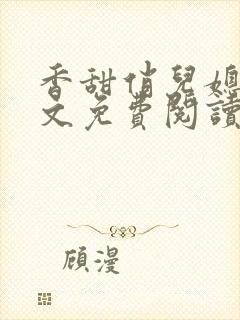 香甜俏兒媳
文免費閱讀
顧漫